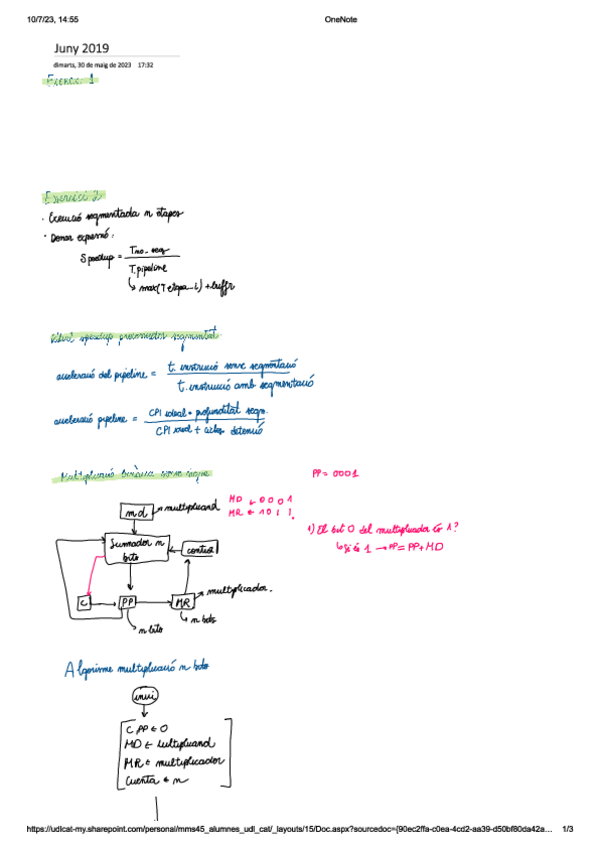 10/7/23, 14:55
OneNote
Juny 2019
dimarts, 30 de maig de 2023 17:32
Exercici 1
Exercici 2
· Execució segmentada n etapes
· Donar expressió:
Speedup = Tno-seg / Tpipeline
↳ max(Tetapa-i) + buffr
Càlcul speedup processador segmentat
acceleració del pipeline = t. instrucció sense segmentació / t. instrucció amb segmentació
acceleració pipeline = CPI ideal * profunditat segm. / CPI ideal + cicles detenció
Multiplicació binària sense signe
PP = 0001
md → multiplicand
MD ← 0001
MR ← 1011
1) El bit 0 del multiplicador és 1?
↳ Si és 1 → PP = PP + MD
Sumador n bits
control
C
PP
MR → multiplicador.
↳ n bits
↳ n bits
Algorisme multiplicació n bits
inici
C PP ← 0
MD ← Multiplicand
MR ← multiplicador
Cuenta ← n
https://udlcat-my.sharepoint.com/personal/mms45_alumnes_udl_cat/_layouts/15/Doc.aspx?sourcedoc={90ec2ffa-c0ea-4cd2-aa39-d50bf80da42a…
1/3